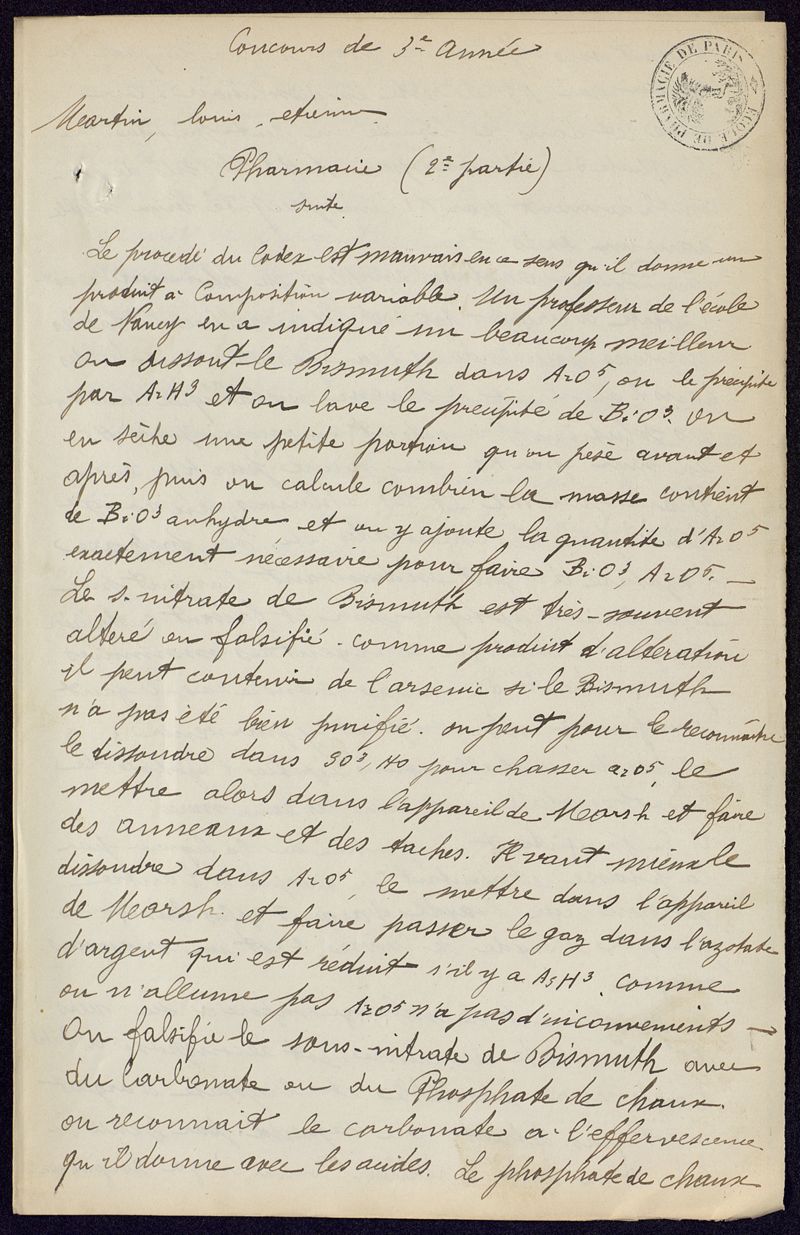 Concours de 3e Année
ÉCOLE DE PHARMACIE DE PARIS
Martin, Louis, etienne
Pharmacie (2e partie)
suite
Le procedé du Codex est mauvais en ce sens qu'il donne un
produit à Composition variable. Un professeur de l'école
de Nancy en a indiqué un beaucoup meilleur
on dissout le Bismuth dans AzO5, on le précipite
par AzH3 et on lave le precipité de BiO3. on
en sèche une petite portion qu'on pèse avant et
après, puis on calcule combien la masse contient
de BiO3 anhydre et on y ajoute la quantité d'AzO5
exactement nécessaire pour faire BiO3, AzO5. —
Le s-nitrate de Bismuth est très-souvent
alteré ou falsifié. comme produit d'altération
il peut contenir de l'arsenic si le Bismuth
n'a pas été bien purifié. on peut pour le reconnaitre
le dissoudre dans SO3, HO pour chasser azO5, le
mettre alors dans l'appareil de Marsh et faire
des anneaux et des taches. Il vaut mieux le
dissoudre dans AzO5, le mettre dans l'appareil
de Marsh. et faire passer le gaz dans l'azotate
d'argent qui est réduit s'il y a AsH3. comme
on n'allume pas AzO5 n'a pas d'inconvenients —
On falsifie le sous-nitrate de Bismuth avec
du Carbonate ou du Phosphate de chaux.
on reconnait le carbonate à l'effervescence
qu'il donne avec les acides. Le phosphate de chaux